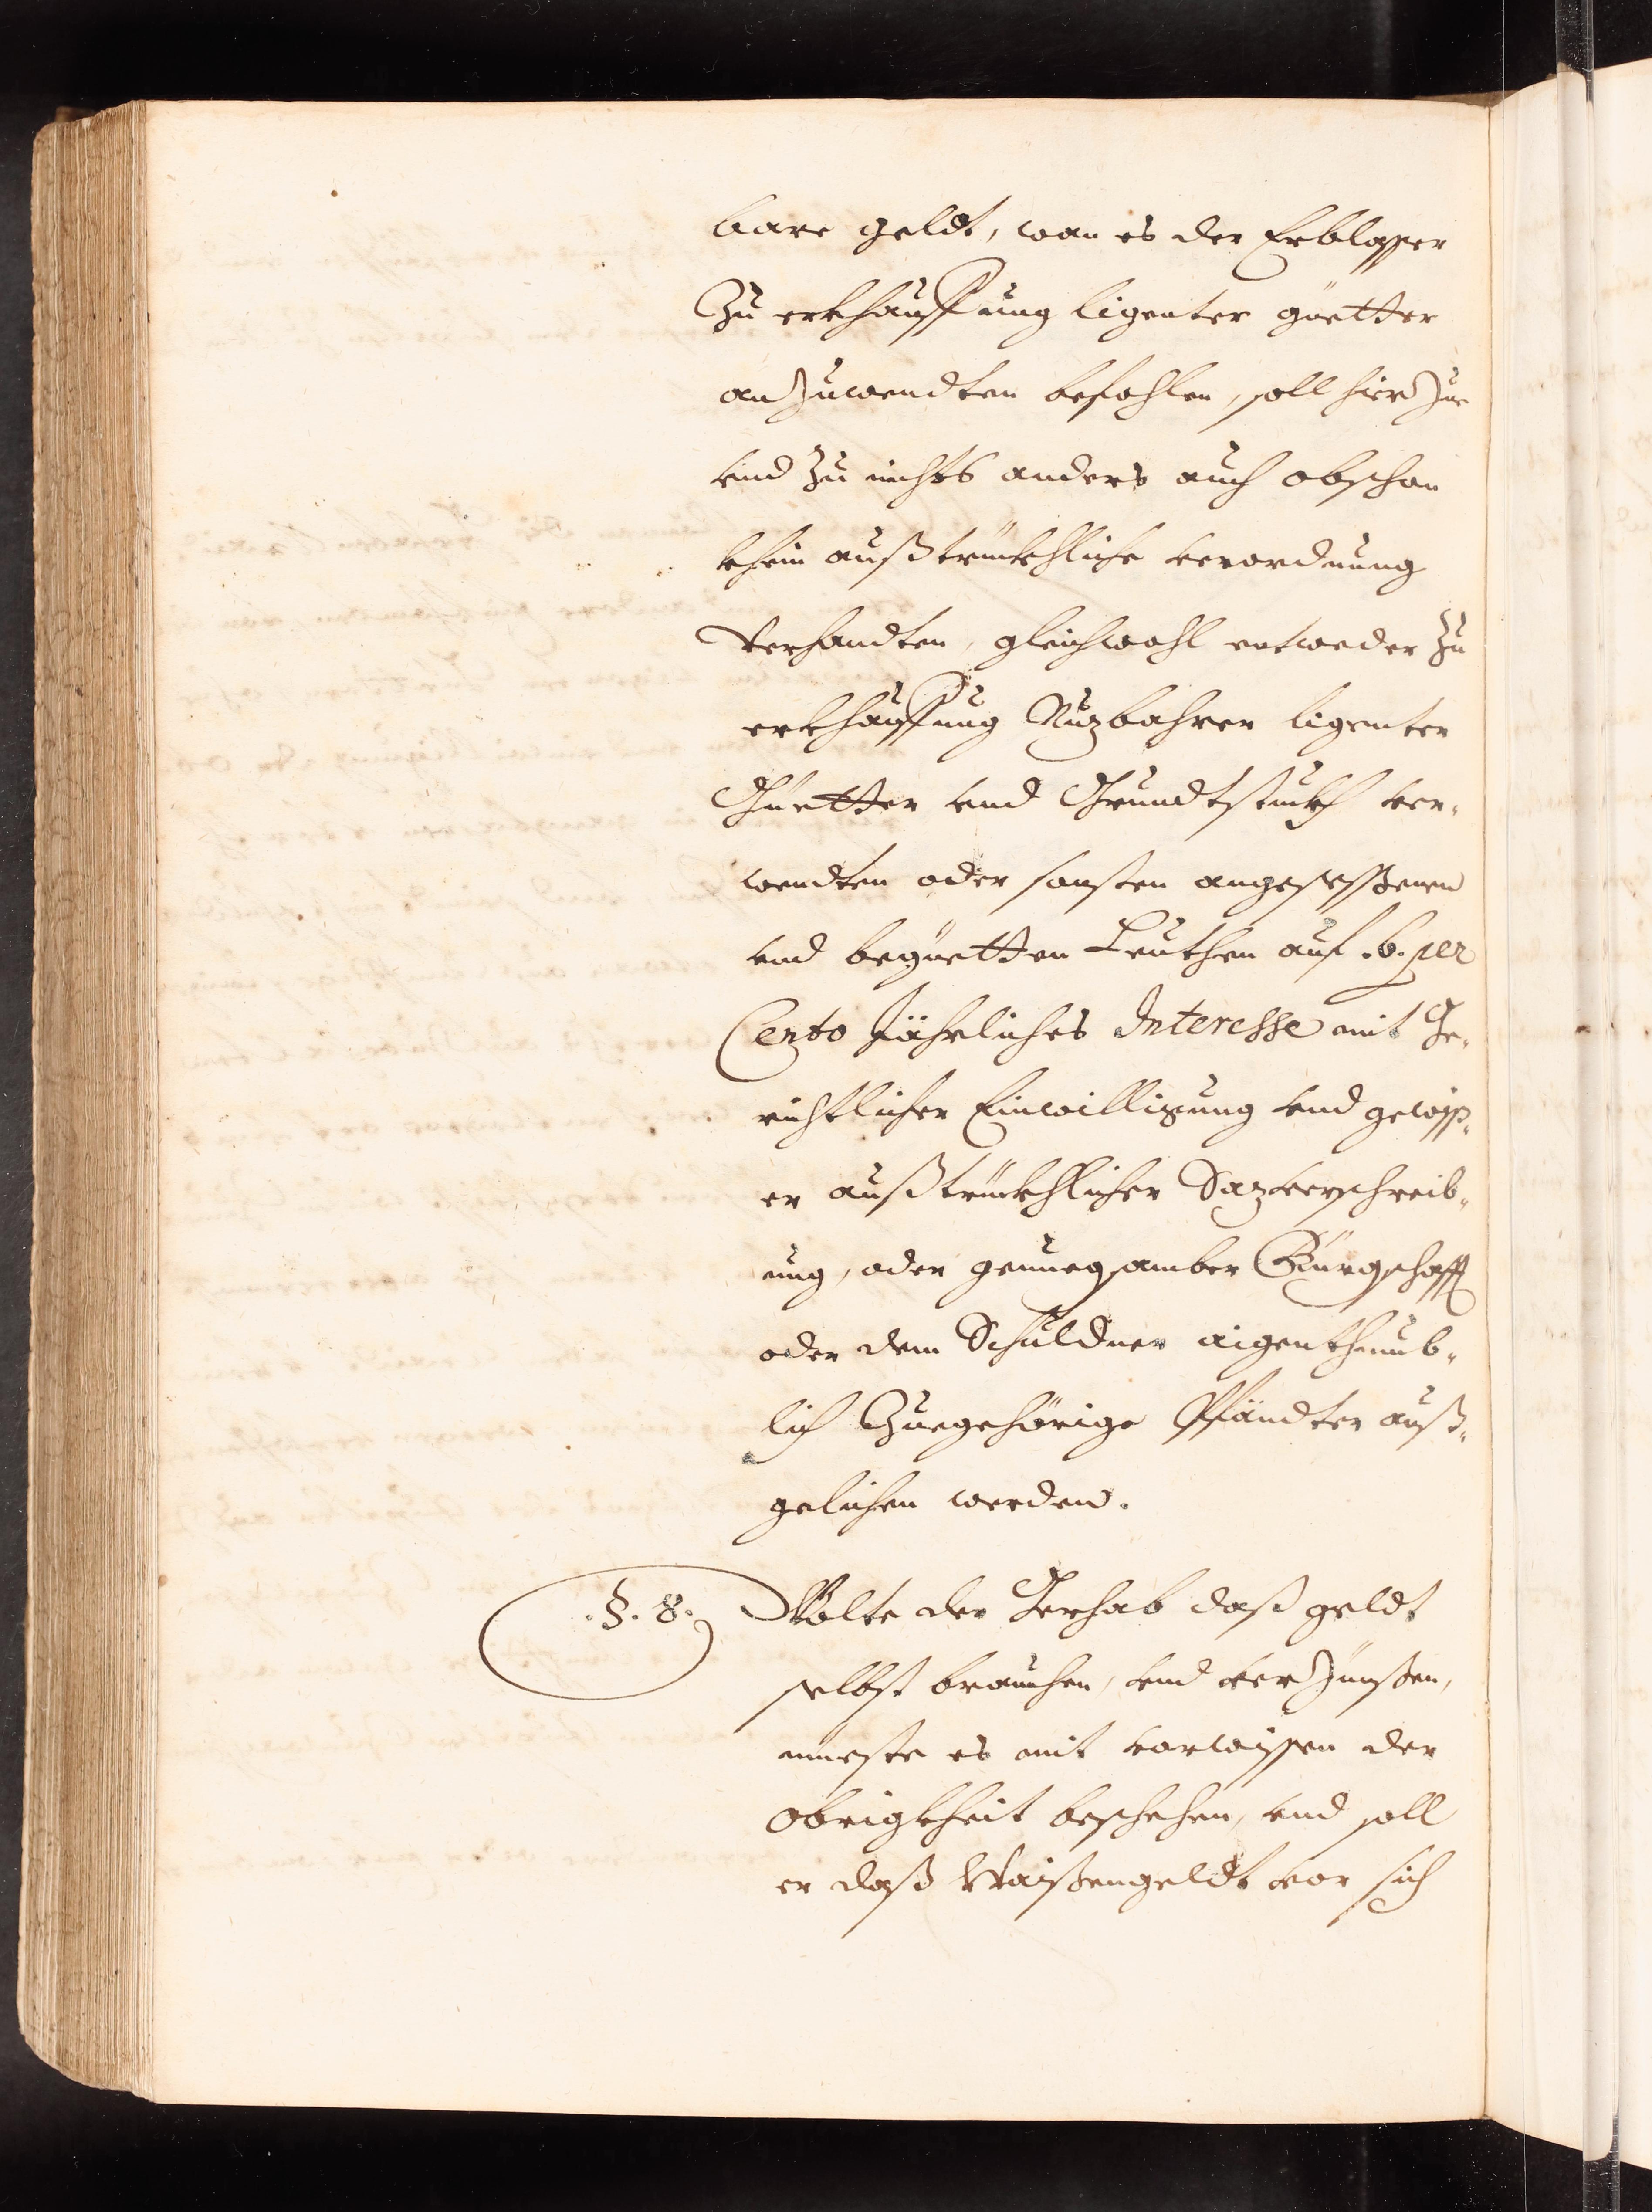 bare geldt, wan es der Erblasser
Zu erkhauffung ligenter güetter
anzuwendten befohlen, soll hierzue
vnd zu nichts anders auch obschon
khein außtrückhliche verordnung
verhandten, gleichwohl entweder zu
erkhauffung Nuzbahrer ligenter
Güetter vnd Grundtstuckh ver-
wendten oder sonsten angesessenen
vnd begüetten Leuthen auf .6. per
Cento Jährliches Interesse mit Ge-
richtlicher Einwilligung vnd gewiss-
er außtrückhlicher Sazverschreib-
ung, oder genuegsamber Bürgschafft
oder dem Schuldner aigenthumb-
lich Zuegehörige Pfändter auß-
gelichen werden.
.§. 8. Wolte der Gerhab daß geldt
selbst brauchen, vnd verzünßen,
mueste es mit vorwissen der
Obrigkheit beschehen, vnd soll
er daß Waißengeldt vor sich